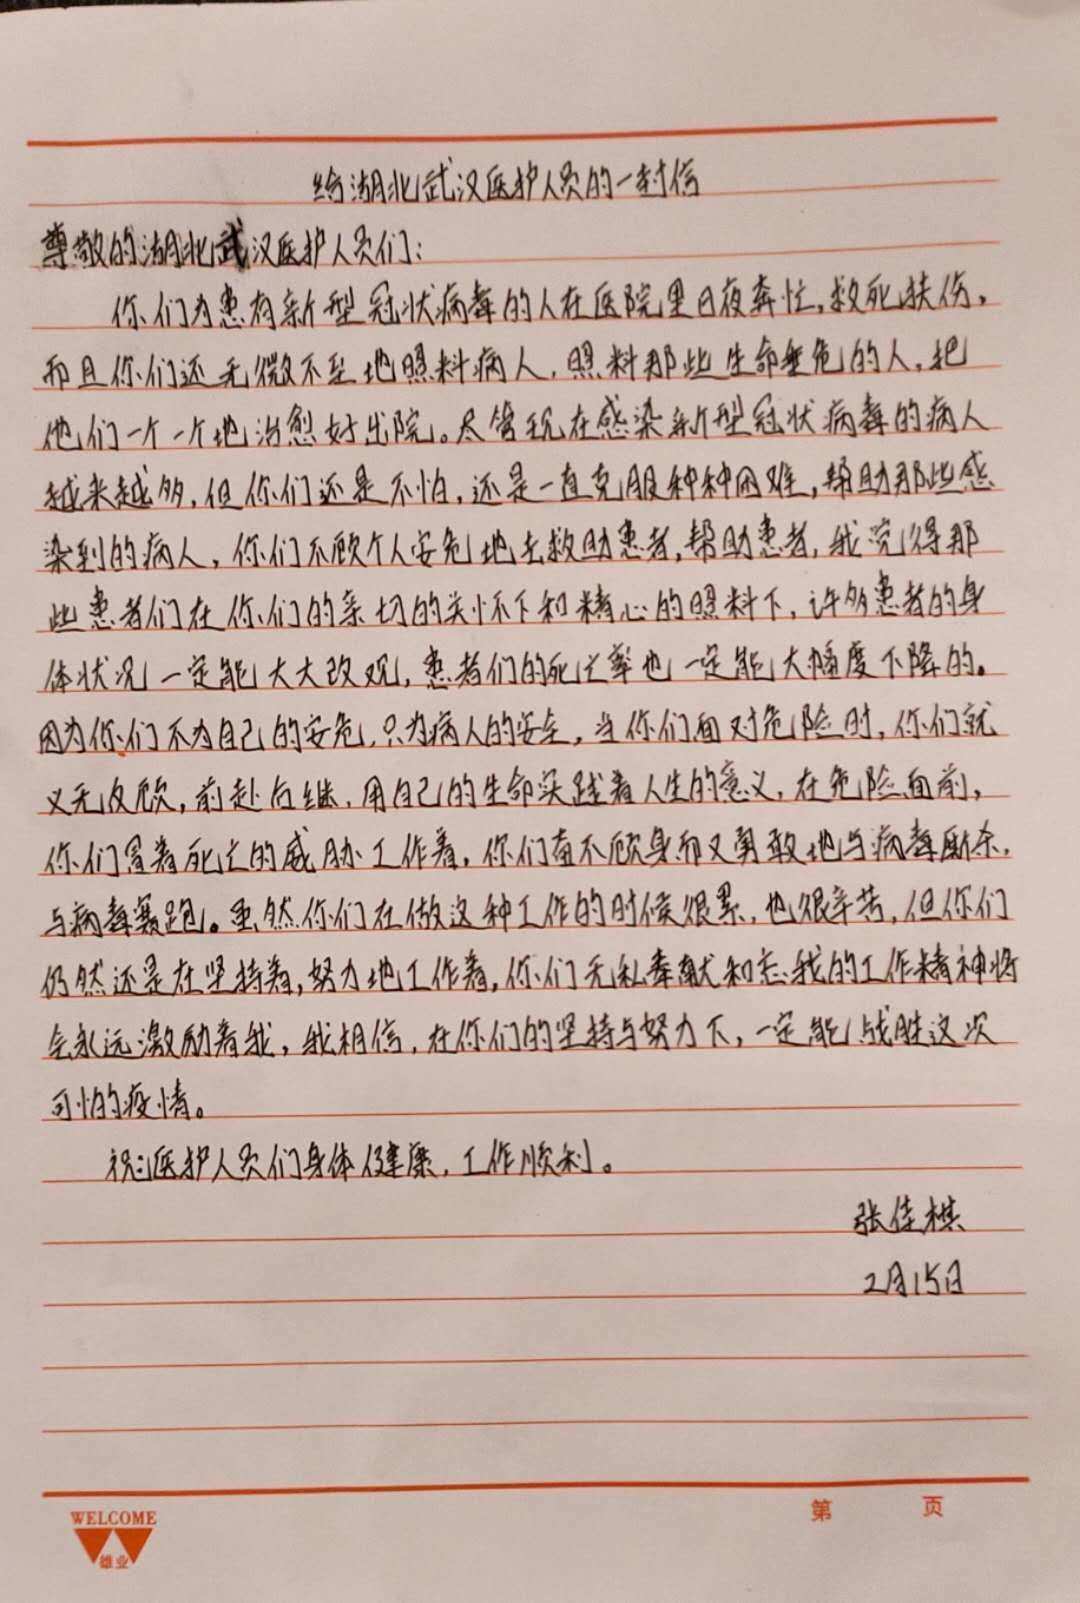 给湖北武汉医护人员的一封信
尊敬的湖北武汉医护人员们：
你们为患有新型冠状病毒的人在医院里日夜奔忙，救死扶伤，
而且你们还无微不至地照料病人，照料那些生命垂危的人，把
他们一个一个地治愈好出院。尽管现在感染新型冠状病毒的病人
越来越多，但你们还是不怕，还是一直克服种种困难，帮助那些感
染到的病人，你们不顾个人安危地去救助患者，帮助患者，我觉得那
些患者们在你们的亲切的关怀下和精心的照料下，许多患者的身
体状况一定能大大改观，患者们的死亡率也一定能大幅度下降的。
因为你们不为自己的安危，只为病人的安全，当你们面对危险时，你们就
义无反顾，前赴后继，用自己的生命实践着人生的意义，在危险面前，
你们冒着死亡的威胁工作着，你们奋不顾身而又勇敢地与病毒厮杀，
与病毒赛跑。虽然你们在做这种工作的时候很累，也很辛苦，但你们
仍然还是在坚持着，努力地工作着，你们无私奉献和忘我的工作精神将
会永远激励着我，我相信，在你们的坚持与努力下，一定能战胜这次
可怕的疫情。
祝：医护人员们身体健康，工作顺利。
张佳棋
2月15日
第 页
WELCOME
雄业